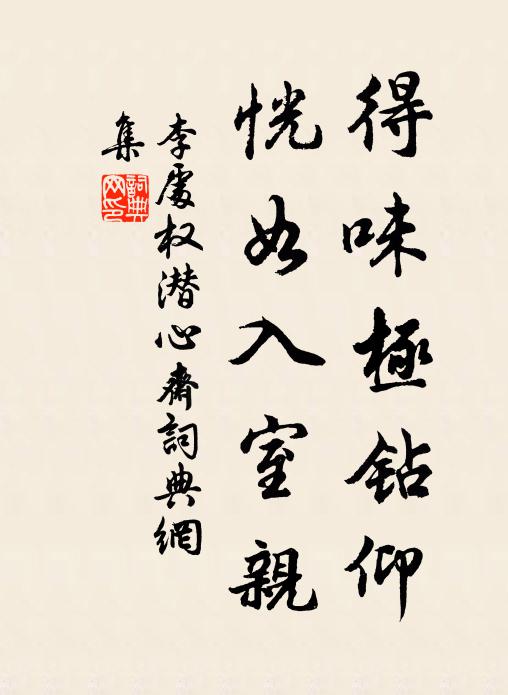 得味極鉆仰
恍如入室親
李處权潜心齋詞典網
集
詞典網印